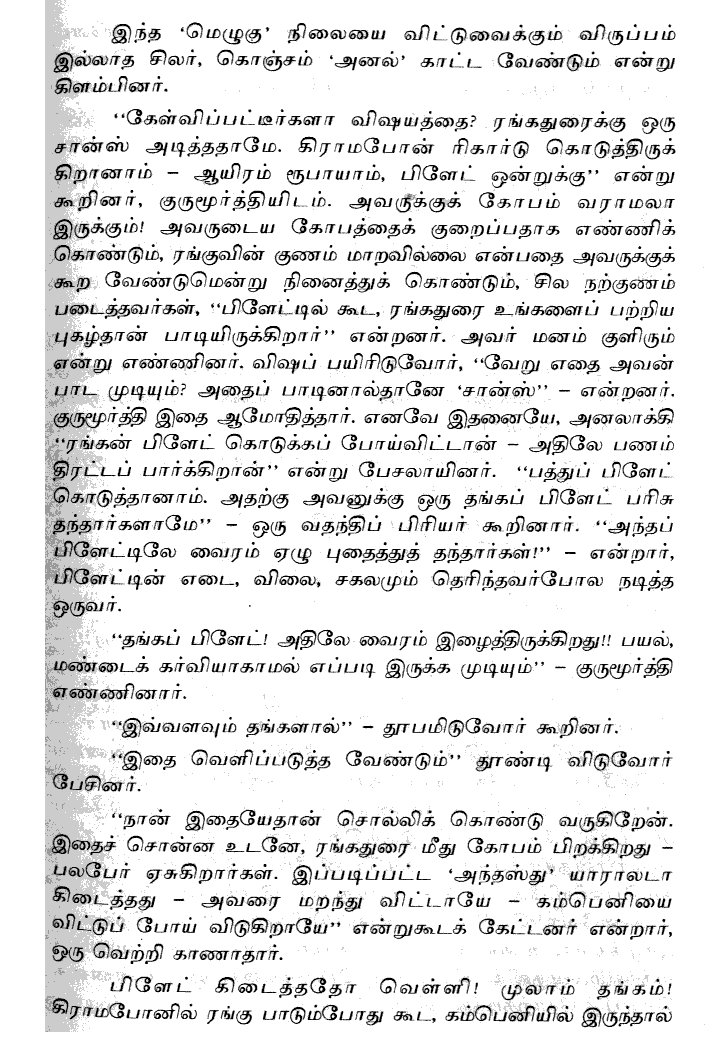 இந்த ‘மெழுகு’ நிலையை விட்டுவைக்கும் விருப்பம்
இல்லாத சிலர், கொஞ்சம் ‘அனல்’ காட்ட வேண்டும் என்று
கிளம்பினர்.
‘‘கேள்விப்பட்டீர்களா விஷயத்தை? ரங்கதுரைக்கு ஒரு
சான்ஸ் அடித்ததாமே. கிராமபோன் ரிகார்டு கொடுத்திருக்
கிறானாம் – ஆயிரம் ரூபாயாம், பிளேட் ஒன்றுக்கு’’ என்று
கூறினர், குருமூர்த்தியிடம். அவருக்குக் கோபம் வராமலா
இருக்கும்! அவருடைய கோபத்தைக் குறைப்பதாக எண்ணிக்
கொண்டும், ரங்குவின் குணம் மாறவில்லை என்பதை அவருக்குக்
கூற வேண்டுமென்று நினைத்துக் கொண்டும், சில நற்குணம்
படைத்தவர்கள், ‘‘பிளேட்டில் கூட, ரங்கதுரை உங்களைப் பற்றிய
புகழ்தான் பாடியிருக்கிறார்’’ என்றனர். அவர் மனம் குளிரும்
என்று எண்ணினர். விஷப் பயிரிடுவோர், ‘‘வேறு எதை அவன்
பாட முடியும்? அதைப் பாடினால்தானே ‘சான்ஸ்’’ – என்றனர்.
குருமூர்த்தி இதை ஆமோதித்தார். எனவே இதனையே, அனலாக்கி
‘‘ரங்கன் பிளேட் கொடுக்கப் போய்விட்டான் – அதிலே பணம்
திரட்டப் பார்க்கிறான்’’ என்று பேசலாயினர். ‘‘பத்துப் பிளேட்
கொடுத்தானாம். அதற்கு அவனுக்கு ஒரு தங்கப் பிளேட் பரிசு
தந்தார்களாமே’’ – ஒரு வதந்திப் பிரியர் கூறினார். ‘‘அந்தப்
பிளேட்டிலே வைரம் ஏழு புதைத்துத் தந்தார்கள்!’’ – என்றார்,
பிளேட்டின் எடை, விலை, சகலமும் தெரிந்தவர்போல நடித்த
ஒருவர்.
‘‘தங்கப் பிளேட்! அதிலே வைரம் இழைத்திருக்கிறது!! பயல்,
மண்டைக் கர்வியாகாமல் எப்படி இருக்க முடியும்’’ – குருமூர்த்தி
எண்ணினார்.
‘‘இவ்வளவும் தங்களால்’’ – தூபமிடுவோர் கூறினர்.
‘‘இதை வெளிப்படுத்த வேண்டும்’’ தூண்டி விடுவோர்
பேசினர்.
‘‘நான் இதையேதான் சொல்லிக் கொண்டு வருகிறேன்.
இதைச் சொன்ன உடனே, ரங்கதுரை மீது கோபம் பிறக்கிறது –
பலபேர் ஏசுகிறார்கள். இப்படிப்பட்ட ‘அந்தஸ்து’ யாராலடா
கிடைத்தது – அவரை மறந்து விட்டாயே – கம்பெனியை
விட்டுப் போய் விடுகிறாயே’’ என்றுகூடக் கேட்டனர் என்றார்,
ஒரு வெற்றி காணாதார்.
பிளேட் கிடைத்ததோ வெள்ளி! முலாம் தங்கம்!
கிராமபோனில் ரங்கு பாடும்போது கூட, கம்பெனியில் இருந்தால்